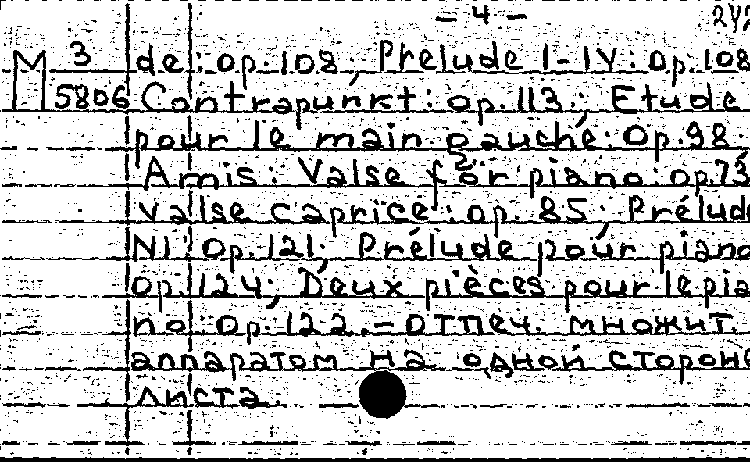 - 4 -
М 3 de: op. 108; Prélude I-IV: Op. 108
5806 Contrapunkt: op. 113; Etude
pour le main gauche: Op. 98;
Amis: Valse for piano: op. 73
Valse caprice: op. 85; Prélud
N1: Op. 121; Prélude pour piano
Op. 124; Deux pièces pour le pia
no: Op. 122. - Отпеч. множит.
аппаратом на одной стороне
листа.